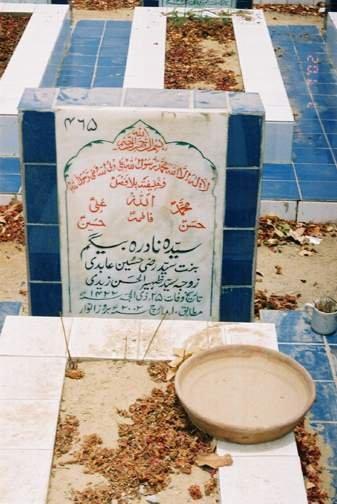 ۴۶۵
بسم اللہ الرحمن الرحیم
لا الہ الا اللہ محمد رسول اللہ علی ولی اللہ وصی رسول اللہ
وخلیفتہ بلا فصل
محمدؐ اللہ علیؑ
حسنؑ فاطمہؑ حسینؑ
سیدہ نادرہ بیگم
بنت سید رضی حسین عابدی
زوجہ سید ظہیر الحسن زیدی
تاریخ وفات ۲۵ ذی الحجہ ۱۴۲۲ھ
مطابق ۱۰ مارچ ۲۰۰۲ء بروز اتوار